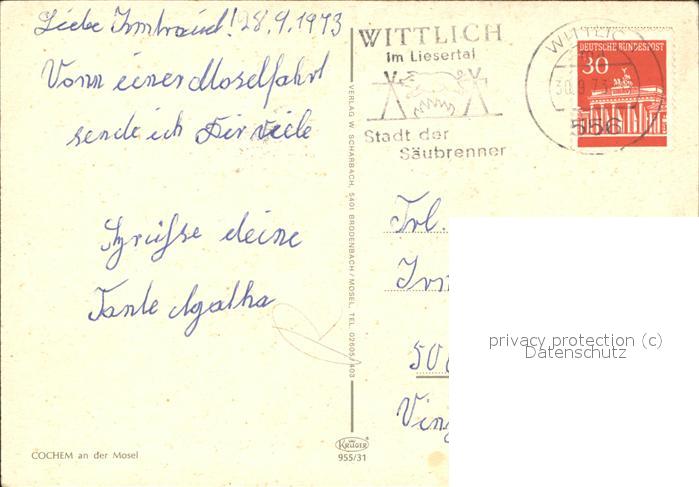 Liebe Irmtraud! 28.9.1973
Vonn einer Moselfahrt
sende ich Dir viele
Grüsse deine
Tante Agatha
COCHEM an der Mosel
VERLAG W. SCHARBACH, 5401 BRODENBACH/MOSEL, TEL. 02605/403
KRÜGER
955/31
WITTLICH
im Liesertal
Stadt der
Säubrenner
WITTLIC
30.9.73
556
DEUTSCHE BUNDESPOST
30
Frl.
50
privacy protection (c)
Datenschutz